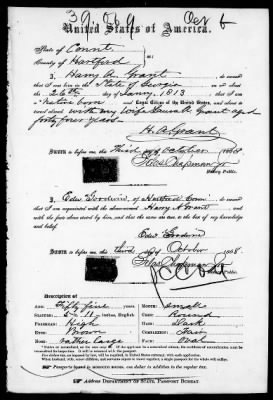 39089 Oct 6
United States of America.
State of Connt.
County of Hartford } ss:
I Harry A. Grant do swear
that I was born in the State of Georgia
on the 26th day of Janry 1813 that I am
a Native born and Loyal Citizen of the United States, and about
to travel with my wife Grant aged
forty four years—
H. A. Grant
Sworn to before me, this Third day of October 1868
Notary Public.
I Edw Goodwin, of Hartford Conn do swear
that I am acquainted with the above-named Harry A Grant and
with the facts above stated by him, and that the same are true to the best of my knowledge
and belief.
Edw Goodwin
Sworn to before me, this third day of October 1868
Description of
Age: Fifty five years
Stature: 5 ft 11 inches, English
Forehead: High
Eyes: Brown
Nose: rather large
Mouth: small
Chin: Round
Hair: Dark
Complexion: Fair
Face: Oval
Address Department of State, Passport Bureau.